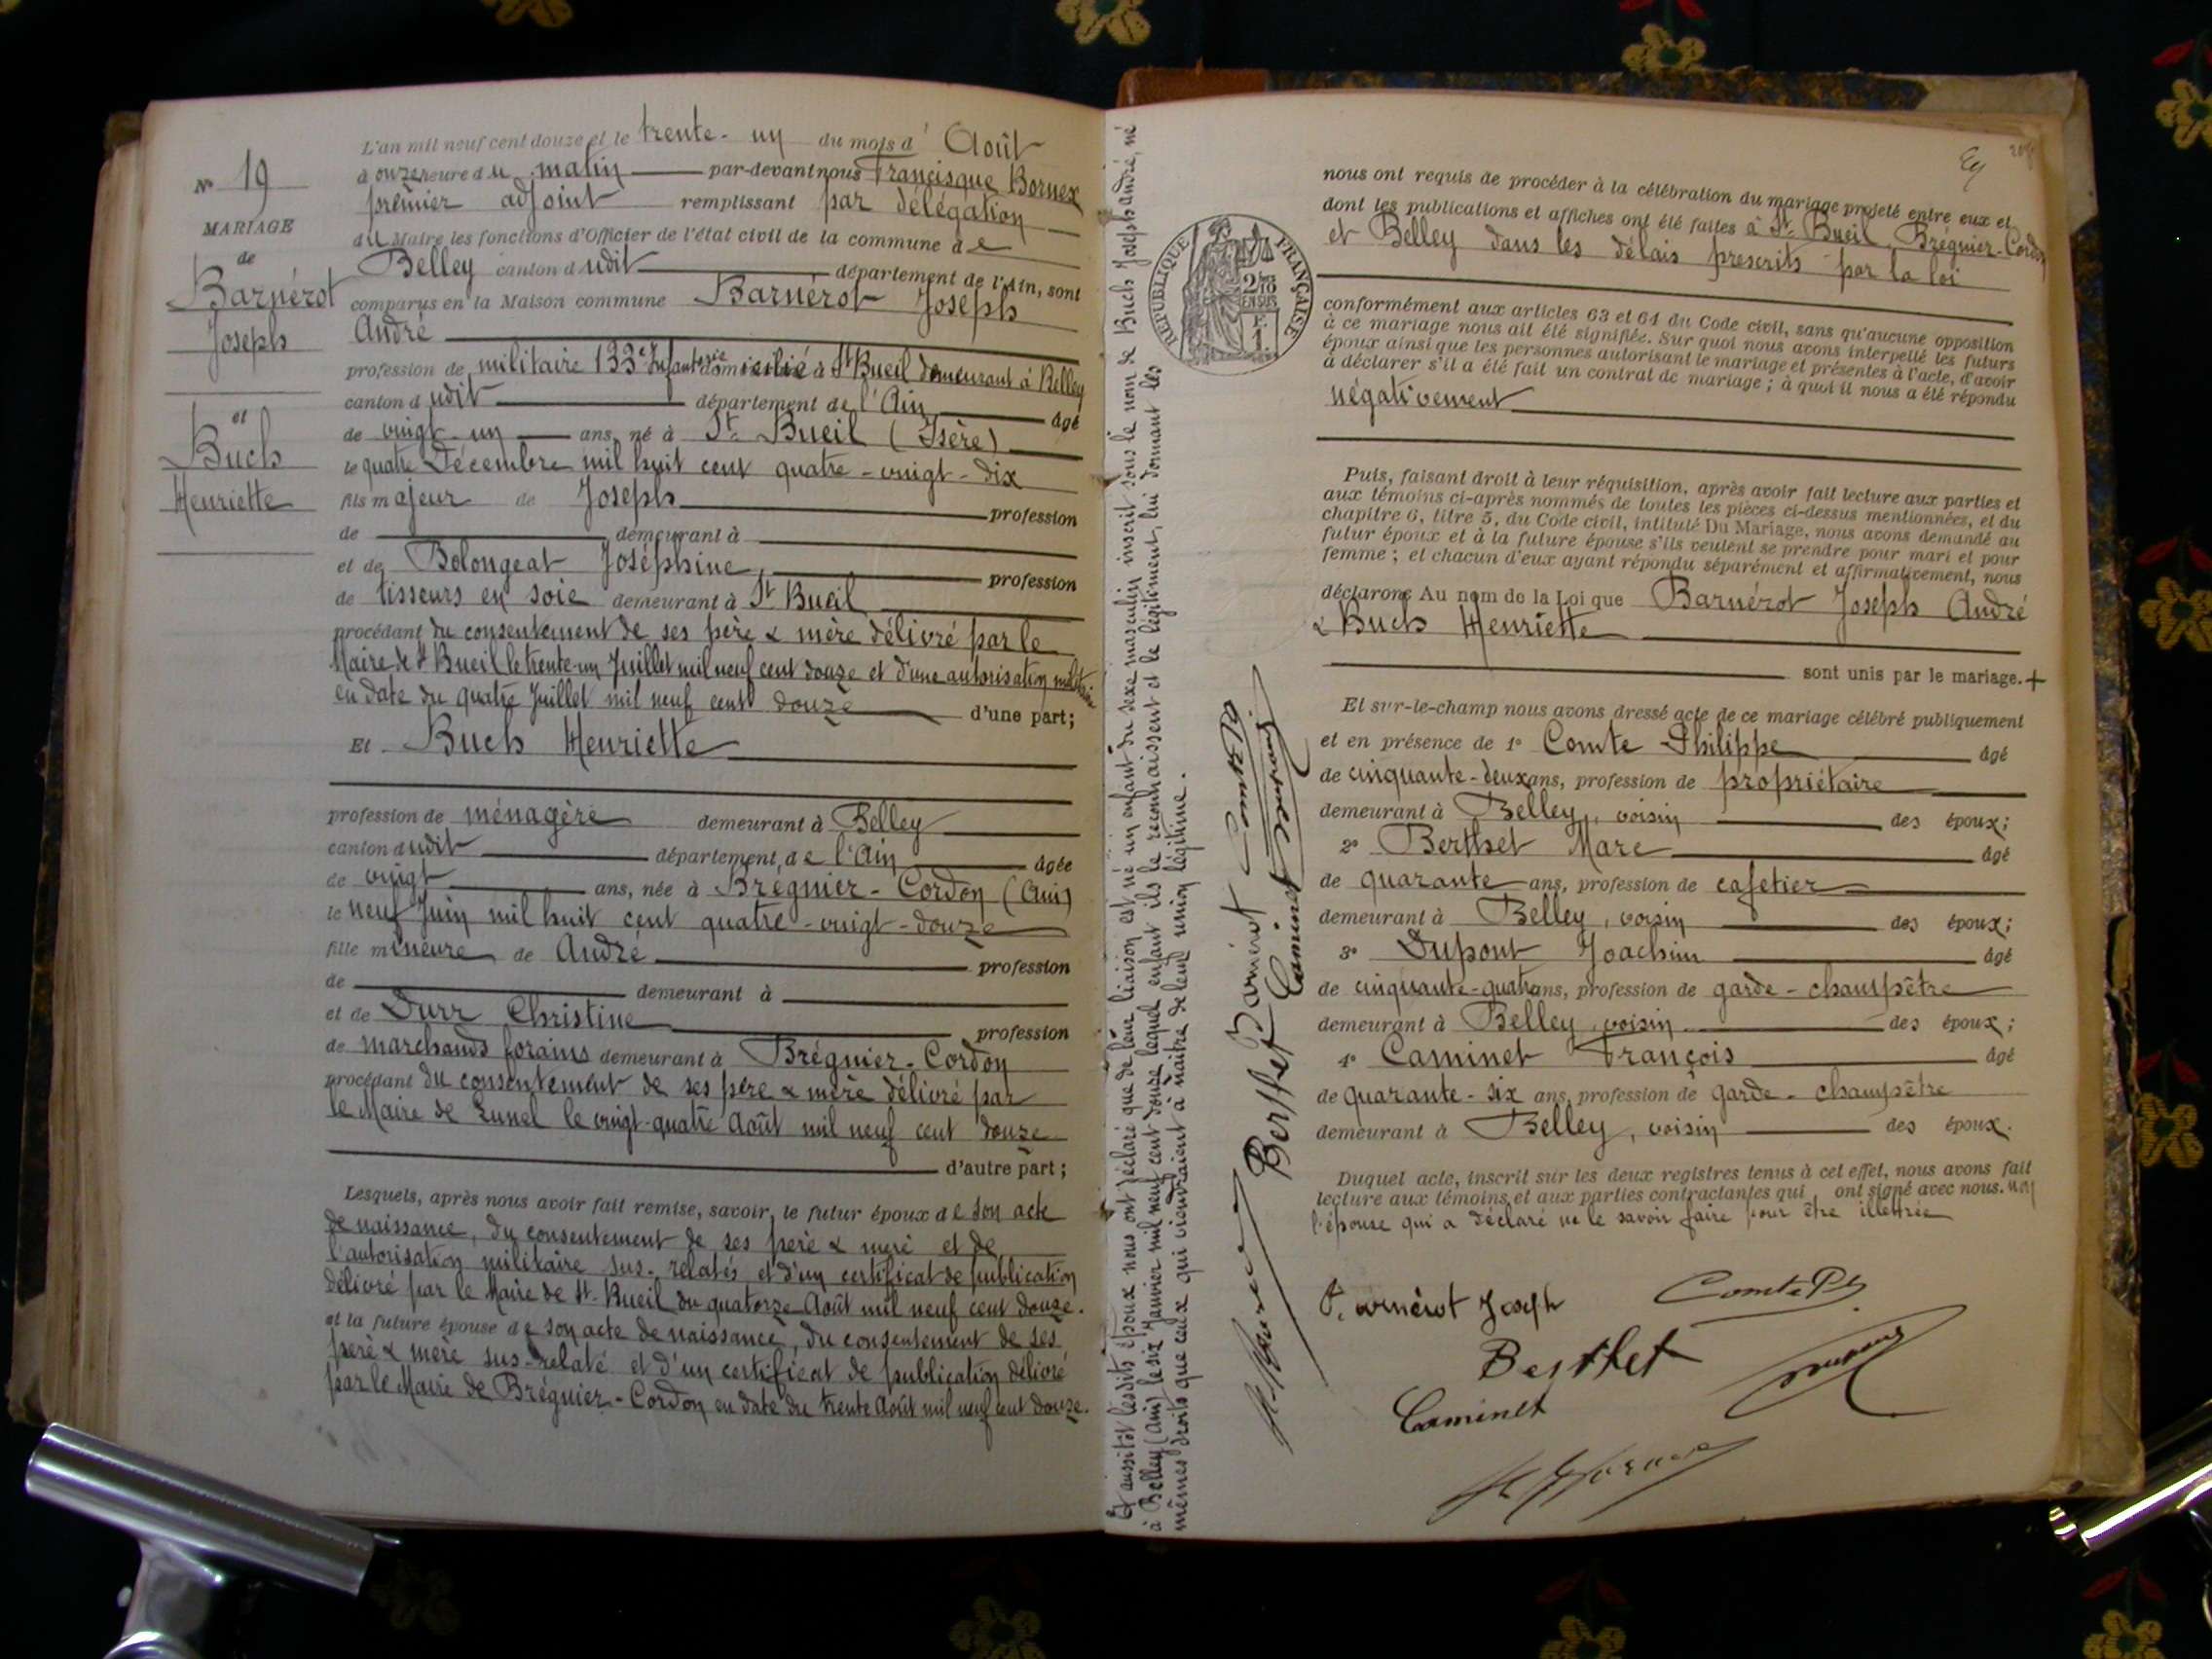 N° 19
MARIAGE
de
Barnérot
Joseph
et
Buch
Henriette
L'an mil neuf cent douze et le trente-un du mois d'Août
à onze heure du matin par-devant nous Francisque Bornex
premier adjoint remplissant par délégation
du Maire les fonctions d'Officier de l'état civil de la commune de
Belley canton dudit département de l'Ain, sont
comparus en la Maison commune Barnérot Joseph
André
profession de militaire 133e Infanterie domicilié à St Bueil demeurant à Belley
canton dudit département de l'Ain âgé
de vingt-un ans, né à St. Bueil (Isère)
le quatre Décembre mil huit cent quatre-vingt-dix
fils majeur de Joseph profession
de demeurant à
et de Bolongeat Joséphine, profession
de tisseurs en soie demeurant à St Bueil
procédant du consentement de ses père & mère délivré par le
Maire de St Bueil le trente-un Juillet mil neuf cent douze et d'une autorisation militaire
en date du quatre Juillet mil neuf cent douze d'une part;
Et Buch Henriette
profession de ménagère demeurant à Belley
canton dudit département de l'Ain âgée
de vingt ans, née à Brégnier-Cordon (Ain)
le neuf Juin mil huit cent quatre-vingt-douze
fille mineure de André profession
de demeurant à
et de Durr Christine profession
de marchands forains demeurant à Brégnier-Cordon
procédant du consentement de ses père & mère délivré par
le Maire de Lunel le vingt-quatre Août mil neuf cent douze
d'autre part;
Lesquels, après nous avoir fait remise, savoir, le futur époux de son acte
de naissance, du consentement de ses père & mère et de
l'autorisation militaire sus-relatés et d'un certificat de publication
délivré par le Maire de St-Bueil du quatorze Août mil neuf cent douze.
et la future épouse de son acte de naissance, du consentement de ses
père & mère sus-relaté et d'un certificat de publication délivré
par le Maire de Brégnier-Cordon en date du trente Août mil neuf cent douze.
Et aussitôt lesdits époux nous ont déclaré que de leur liaison est né un enfant du sexe masculin inscrit sous le nom de Buch Joseph andré, né
à Belley (Ain) le six Janvier mil neuf cent douze lequel enfant ils le reconnaissent et le légitiment, lui donnant les
mêmes droits que ceux qui viendraient à naître de leur union légitime.
Barnérot Comte Ph
Berthet Caminet
RÉPUBLIQUE FRANÇAISE
2/10
EN SUS
F.
1.
nous ont requis de procéder à la célébration du mariage projeté entre eux et
dont les publications et affiches ont été faites à St-Bueil, Brégnier-Cordon
et Belley dans les délais prescrits par la loi
conformément aux articles 63 et 64 du Code civil, sans qu'aucune opposition
à ce mariage nous ait été signifiée. Sur quoi nous avons interpellé les futurs
époux ainsi que les personnes autorisant le mariage et présentes à l'acte, d'avoir
à déclarer s'il a été fait un contrat de mariage; à quoi il nous a été répondu
négativement
Puis, faisant droit à leur réquisition, après avoir fait lecture aux parties et
aux témoins ci-après nommés de toutes les pièces ci-dessus mentionnées, et du
chapitre 6, titre 5, du Code civil, intitulé Du Mariage, nous avons demandé au
futur époux et à la future épouse s'ils veulent se prendre pour mari et pour
femme; et chacun d'eux ayant répondu séparément et affirmativement, nous
déclarons Au nom de la Loi que Barnérot Joseph André
& Buch Henriette
sont unis par le mariage.+
Et sur-le-champ nous avons dressé acte de ce mariage célébré publiquement
et en présence de 1° Comte Philippe âgé
de cinquante-deux ans, profession de propriétaire
demeurant à Belley, voisin des époux;
2° Berthet Marc âgé
de quarante ans, profession de cafetier
demeurant à Belley, voisin des époux;
3° Dupont Joachim âgé
de cinquante-quatre ans, profession de garde-champêtre
demeurant à Belley, voisin des époux;
4° Caminet François âgé
de quarante-six ans, profession de garde-champêtre
demeurant à Belley, voisin des époux.
Duquel acte, inscrit sur les deux registres tenus à cet effet, nous avons fait
lecture aux témoins et aux parties contractantes qui ont signé avec nous. non
l'épouse qui a déclaré ne le savoir faire pour être illettrée
Barnérot Joseph Comte Ph
Berthet
Caminet